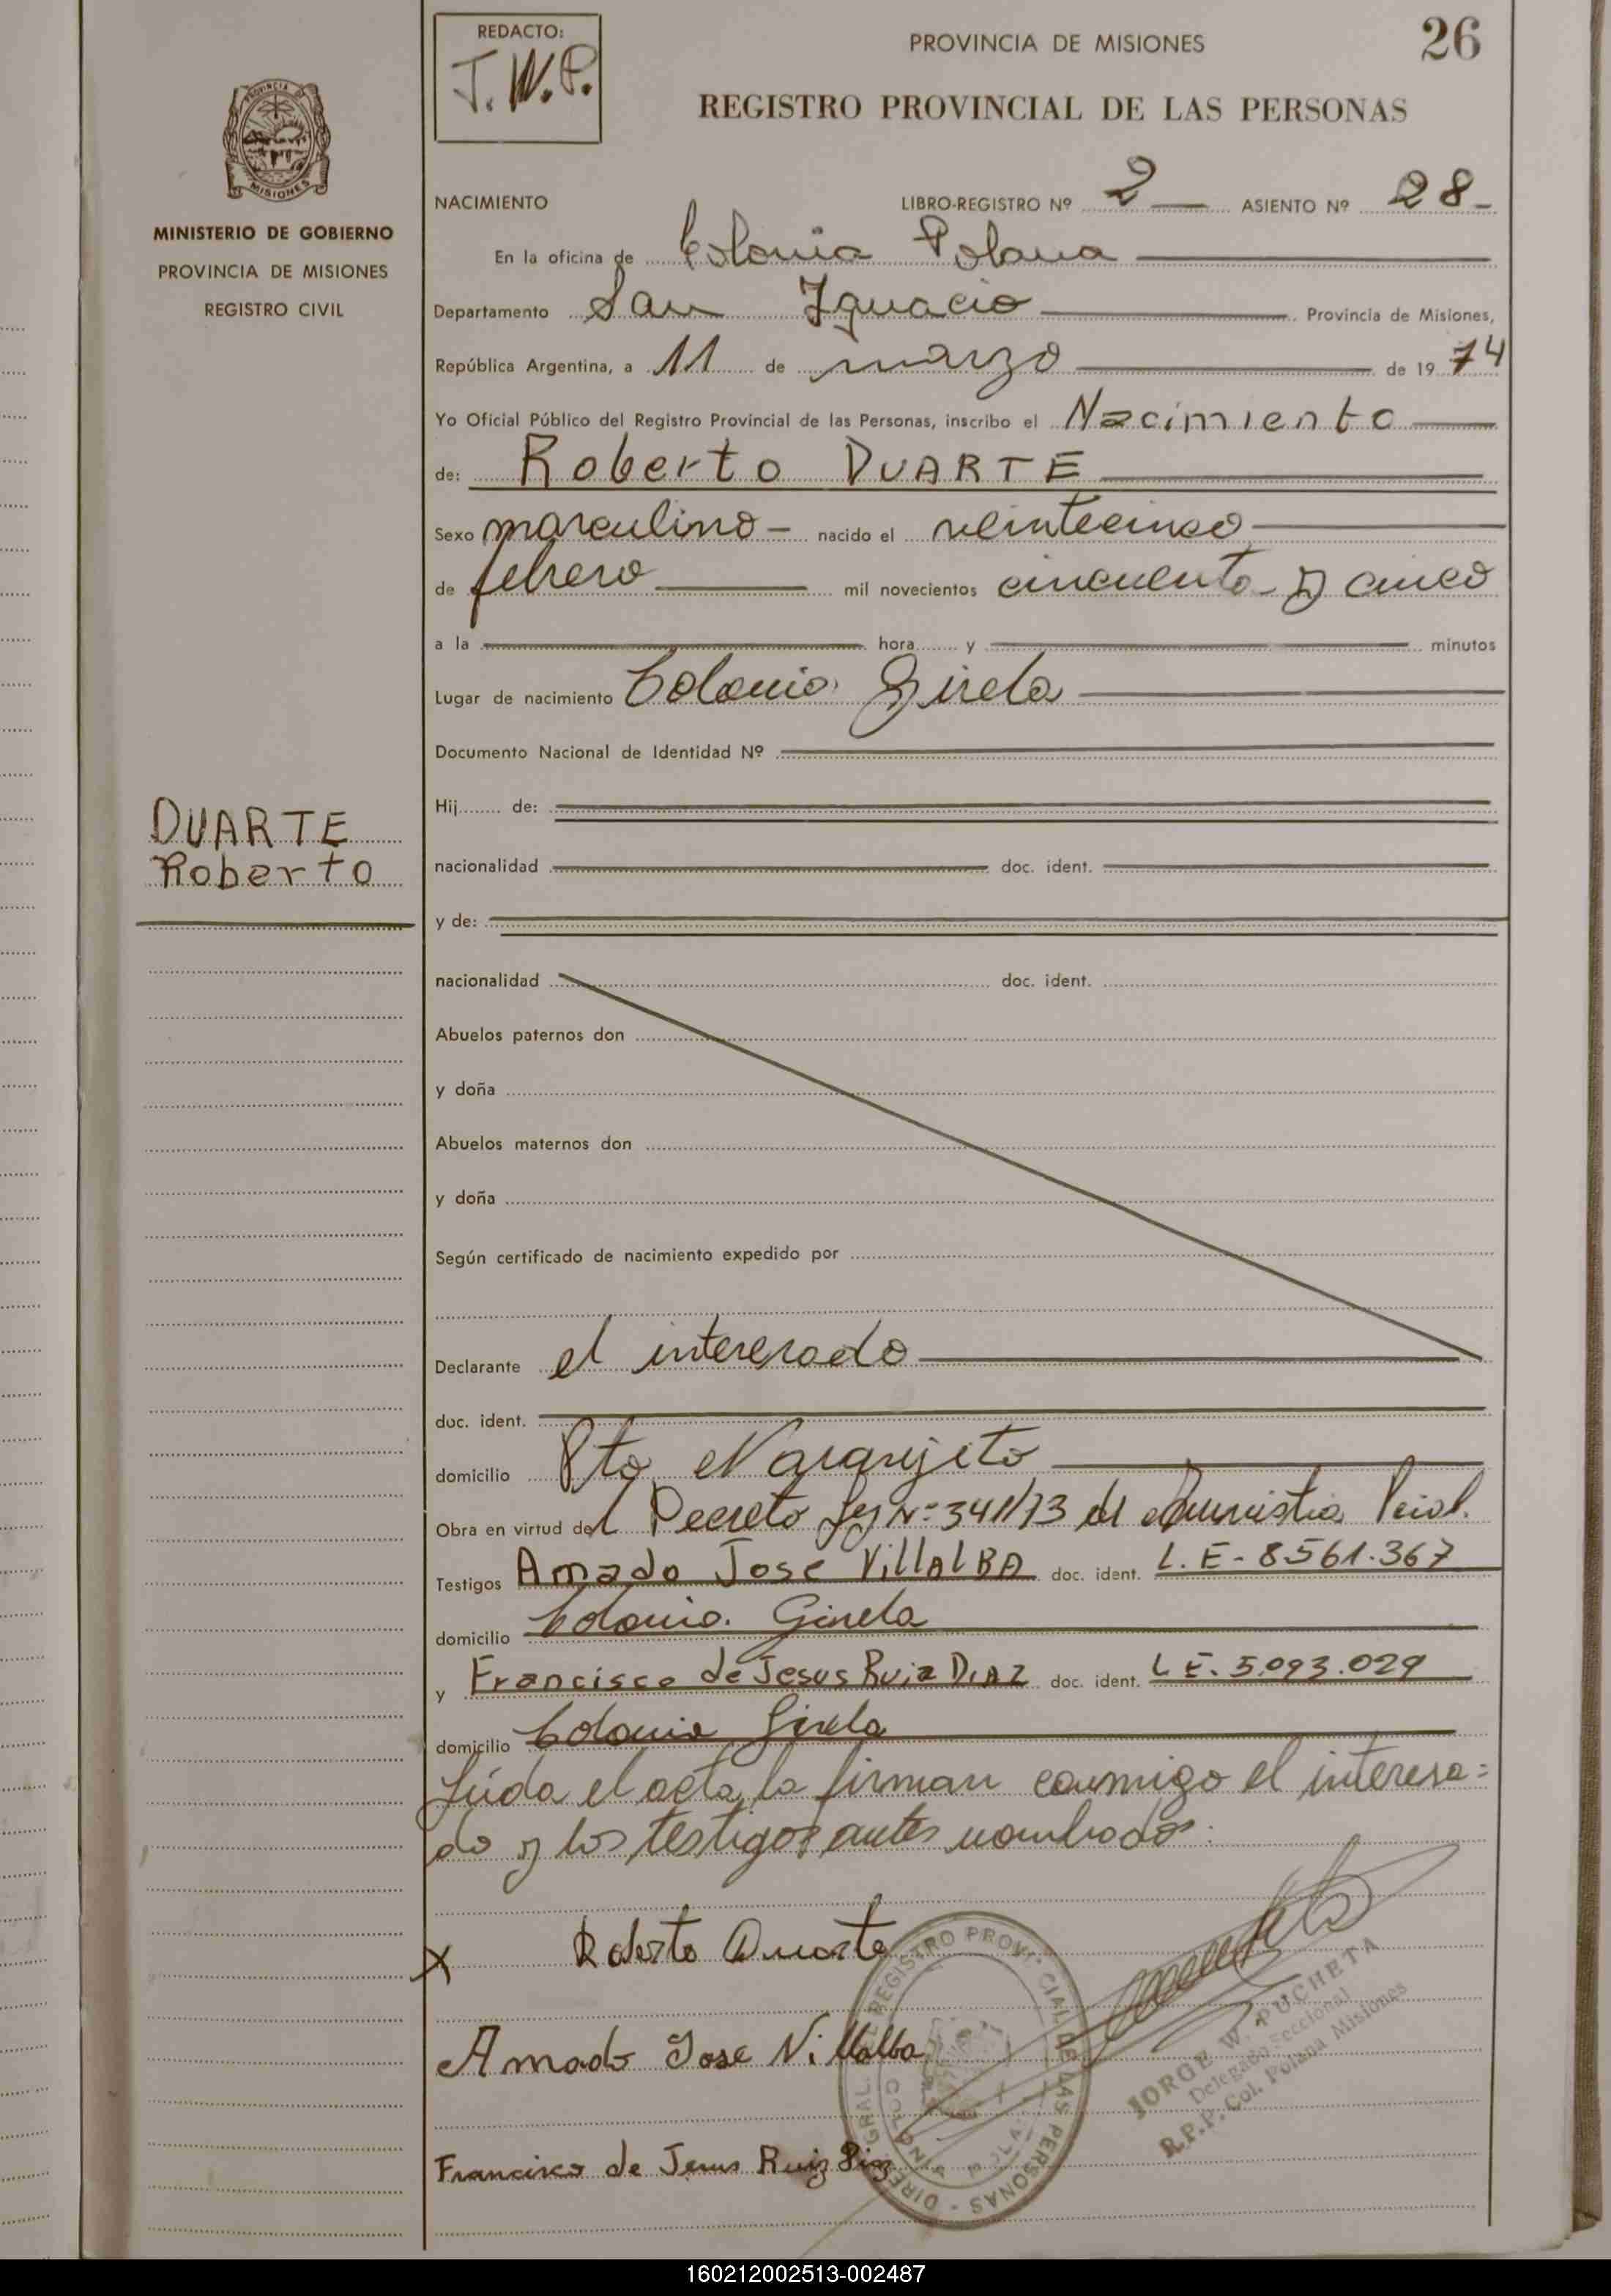 REDACTO:
J.W.P.
PROVINCIA DE MISIONES
26
REGISTRO PROVINCIAL DE LAS PERSONAS
PROVINCIA DE
MISIONES
MINISTERIO DE GOBIERNO
PROVINCIA DE MISIONES
REGISTRO CIVIL
NACIMIENTO LIBRO-REGISTRO Nº 2 ASIENTO Nº 28
En la oficina de Colonia Polana
Departamento San Ignacio Provincia de Misiones,
República Argentina, a 11 de marzo de 1974
Yo Oficial Público del Registro Provincial de las Personas, inscribo el Nacimiento
de: Roberto DUARTE
Sexo masculino nacido el veinticinco
de febrero mil novecientos cincuenta y cinco
a la hora y minutos
Lugar de nacimiento Colonia Gisela
Documento Nacional de Identidad Nº
Hij de:
DUARTE
Roberto
nacionalidad doc. ident.
y de:
nacionalidad doc. ident.
Abuelos paternos don
y doña
Abuelos maternos don
y doña
Según certificado de nacimiento expedido por
Declarante el interesado
doc. ident.
domicilio Pto Naranjito
Obra en virtud del Decreto Ley Nº 341/73 de Amnistia Pcial.
Testigos Amado Jose VillALBA doc. ident. L.E-8561.367
domicilio Colonia Gisela
y Francisco de Jesus Ruiz DIAZ doc. ident. L E. 5.093.029
domicilio Colonia Gisela
Leida el acta, la firman conmigo el interesa=
do y los testigos antes nombrados.
X Roberto Duarte
Amado Jose Villalba
Francisco de Jesus Ruiz Diaz
REGISTRO PROVINCIAL DE LAS PERSONAS
JORGE W. PUCHETA
Delegado Seccional
R.P.P. Col. Polana Misiones
160212002513-002487